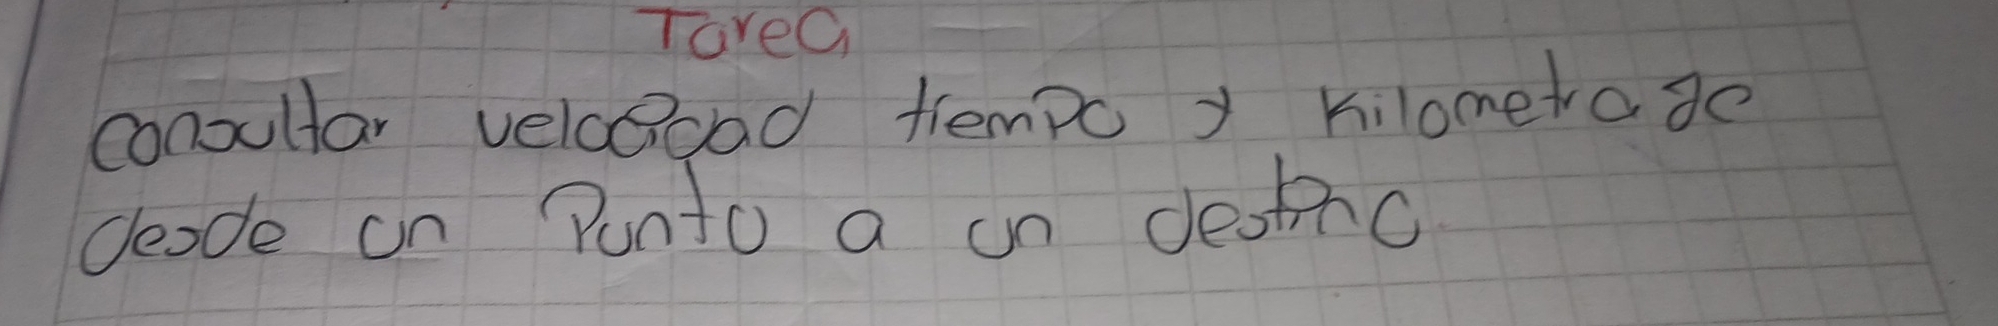 Tarea
consultar velocidad tiempo y kilometrage
desde un Punto a un destino